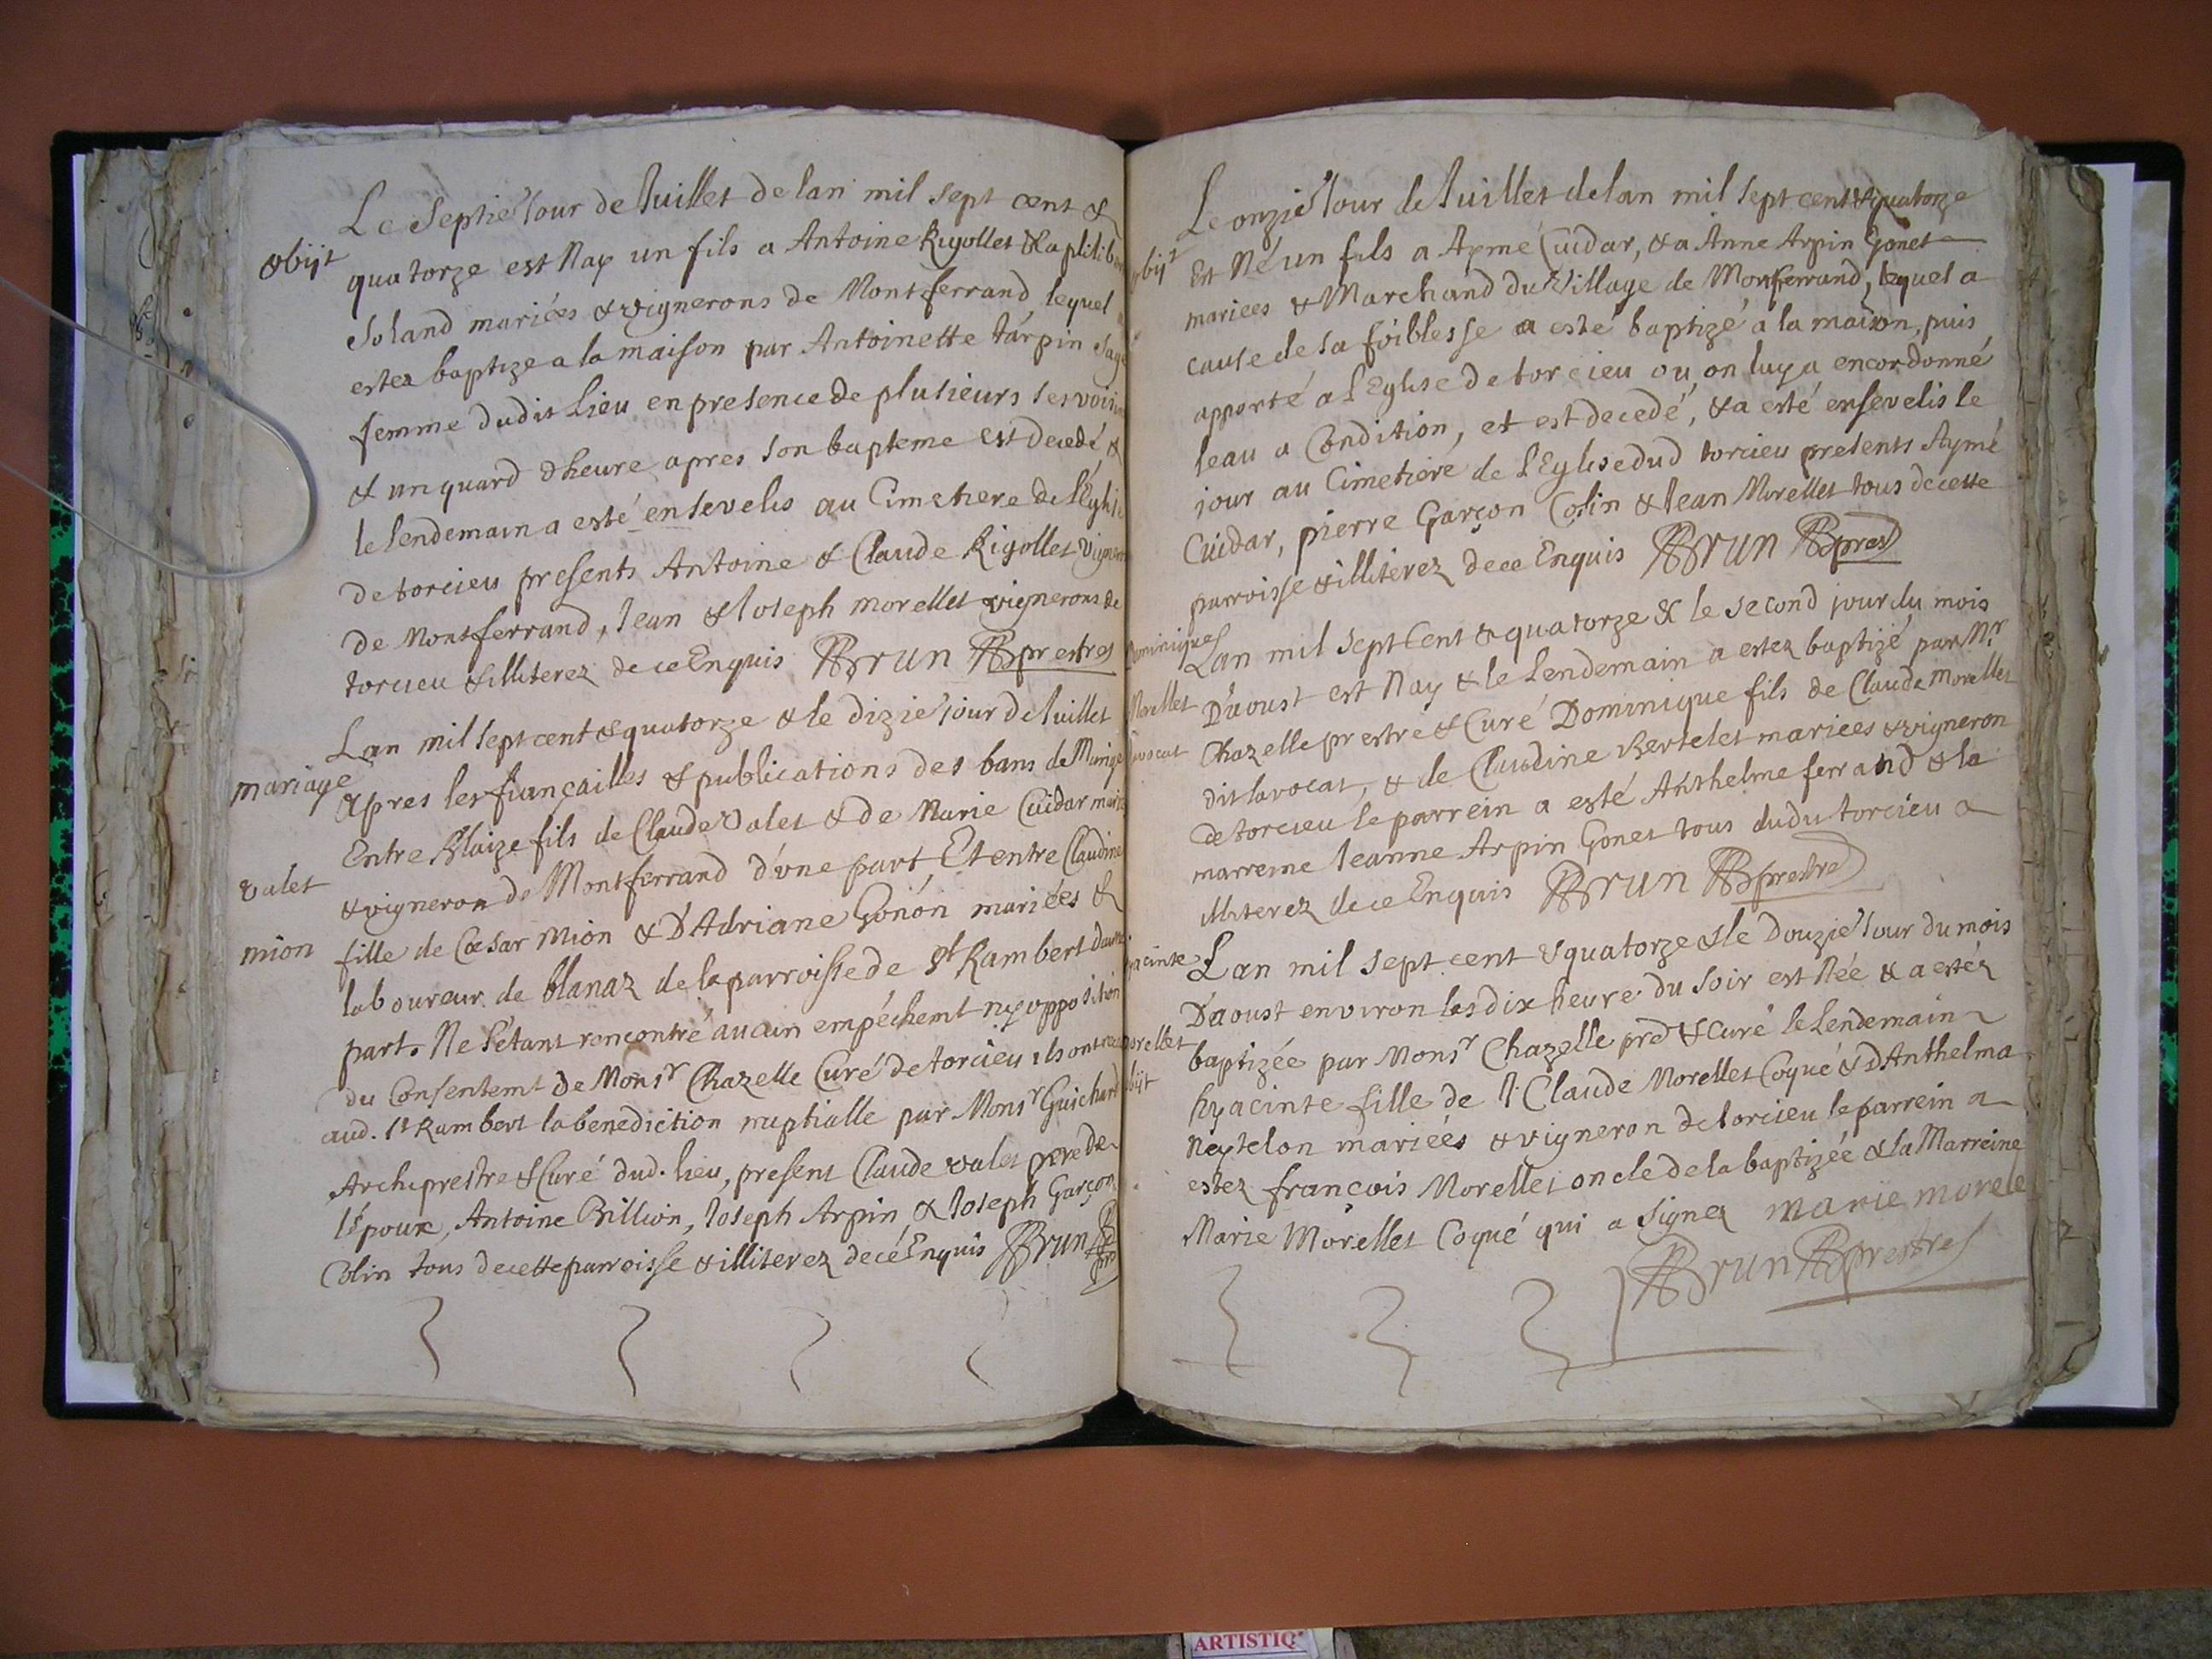 Le Septie Jour de Juillet de lan mil sept cent &
obijt
quatorze est Nay un fils a Antoine Rigollet &
Joland mariées & vignerons de Montferrand lequel a
estez baptize a la maison par Antoinette tárpin sage
femme dudit Lieu en presence de plusieurs ses voisins
& un quard dheure apres son bapteme est decedé, &
le lendemain a esté ensevelis au Cimetiere de l'Eglise
de torcieu presents Antoine & Claude Rigollet vignerons
de Montferrand, Jean & Joseph morellet vignerons de
torcieu & illiterez de ce Enquis Brun prestre
Lan mil sept cent & quatorze & le dizie jour de Juillet
mariage
apres les fiançailles & publications des bans de Mariage
Entre Blaize fils de Claude Valet & de Marie Cuidar mariés
valet
& vigneron de Montferrand d'une part, Et entre Claudine
mion
fille de Cæsar Mion & D'Adriane Gonón mariées &
laboureur de blanaz de la parroisse de St Rambert dautre
part. Ne s'étant rencontré aucun empéchemt ny opposition
du Consentemt de Monsr Chazelle Curé de torcieu ils ont receu
aud. St Rambert la benediction nuptialle par Monsr Guichard
Archiprestre & Curé dud. lieu, present Claude valet pere de
l'époux, Antoine Billion, Joseph Arpin, & Joseph Garçon
Colin tous de cette parroisse & illiterez de cé Enquis Brun
Le onzie Jour de Juillet de lan mil sept cent & quatorze
obijt
Est Né un fils a Aymé Cuidar, & a Anne Arpin Gonet
mariees & Marchand du Village de Montferrand, lequel a
cause de sa foiblesse a esté baptizé a la maison, puis
apporté a l'Eglise de torcieu ou on luy a encor donné
leau a Condition, et est decedé, & a esté ensevelis le
jour au Cimetiere de l'Eglise dud torcieu presents Aymé
Cuidar, pierre Garçon Colin & Jean Morellet tous de cette
parroisse & illiterez de ce Enquis Brun pres
Dominique
Lan mil sept Cent & quatorze & le second jour du mois
Morellet
D'aoust est Nay & le Lendemain a estez baptizé par Mr
lavocat
Chazelle prestre & Curé Dominique fils de Claude Morellet
dit lavocat, & de Claudine Bertelet mariees & vigneron
de torcieu le parrein a esté Anthelme ferrand & la
marreine Jeanne Arpin Gonet tous dudit torcieu &
illiterez de ce Enquis Brun prestre
Lan mil sept cent & quatorze & le Douzie Jour du mois
hyacinte
D'aoust environ les dix heure du soir est Née & a estéz
morellet
baptizée par Monsr Chazelle pre & Curé le Lendemain
obijt
hyacinte fille de Claude Morellet Coqué & D'Anthelma
Neytelon mariées & vigneron de torcieu le parrein a
estez francois Morellet oncle de la baptizée & la Marreine
Marie Morellet Coqué qui a signez marie morele
Brun prestre
ARTISTIQ